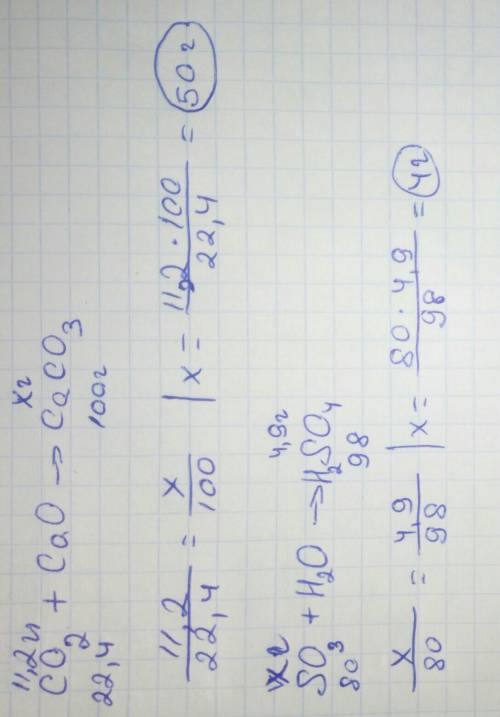 11,2л xг
CO2 + CaO → CaCO3
22,4 100г
11,2/22,4 = x/100 | x = 11,2 · 100/22,4 = 50г
xг 4,9г
SO3 + H2O → H2SO4
80 98
x/80 = 4,9/98 | x = 80 · 4,9/98 = 4г